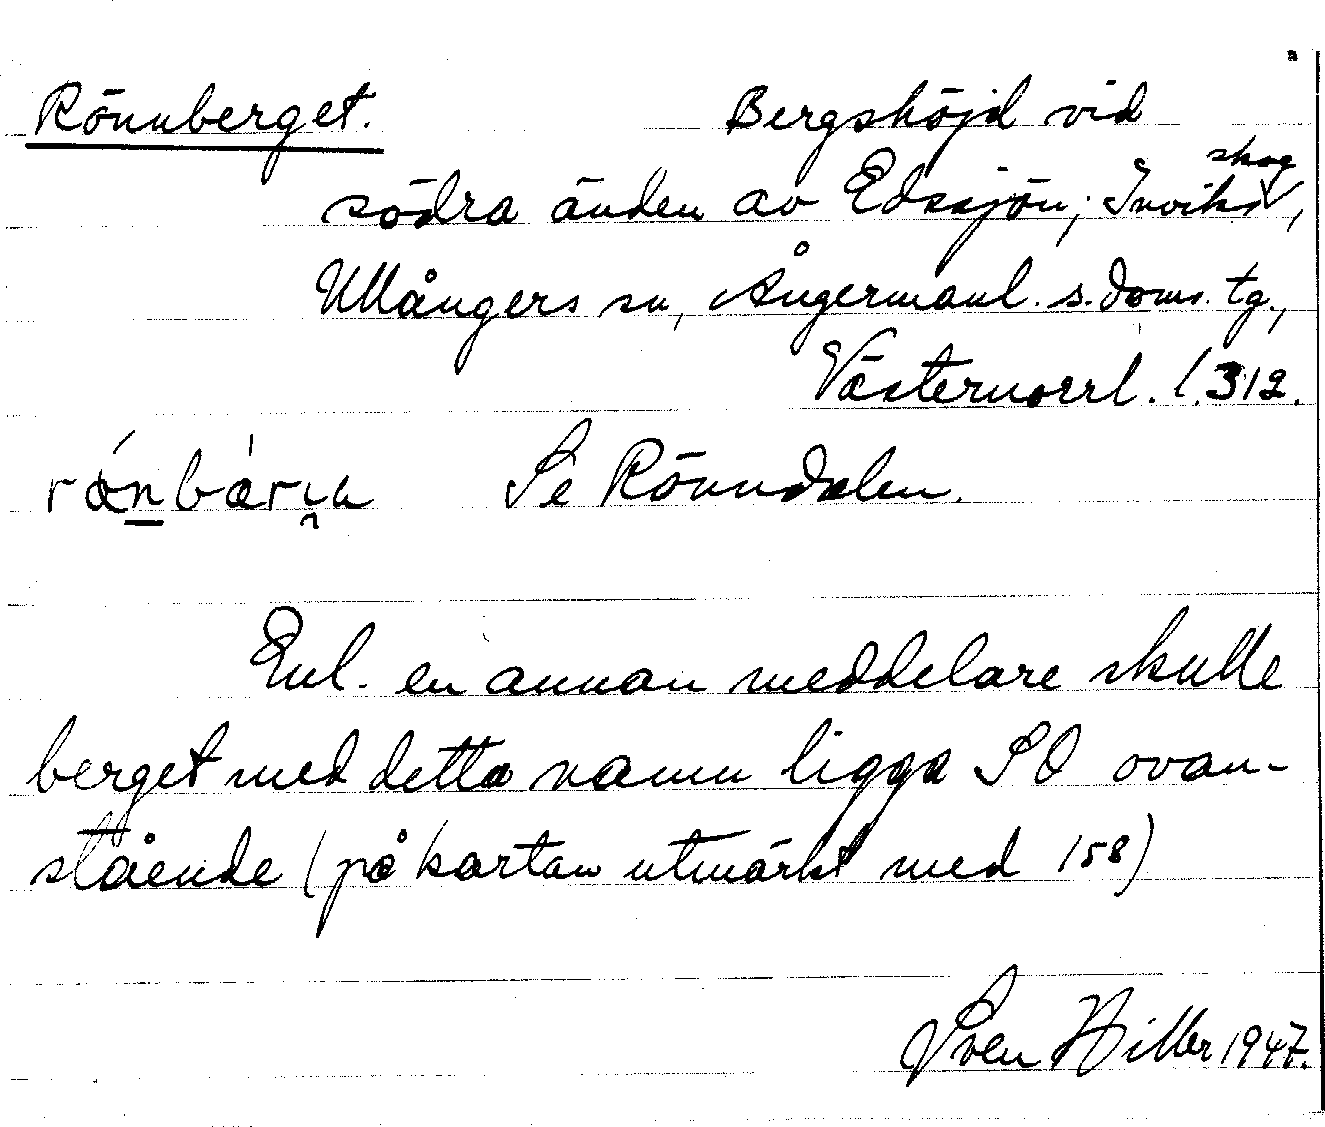 Rönnberget. Bergshöjd vid
södra änden av Edssjön; Inviks skog,
Ullångers sn, Ångermanl. s. doms. tg.,
Västernorrl. l. 312.
Se Rönndalen.
Enl. en annan meddelare skulle
berget med detta namn ligga SO ovan-
stående (på kartan utmärkt med 158)
Sven Hiller 1947.